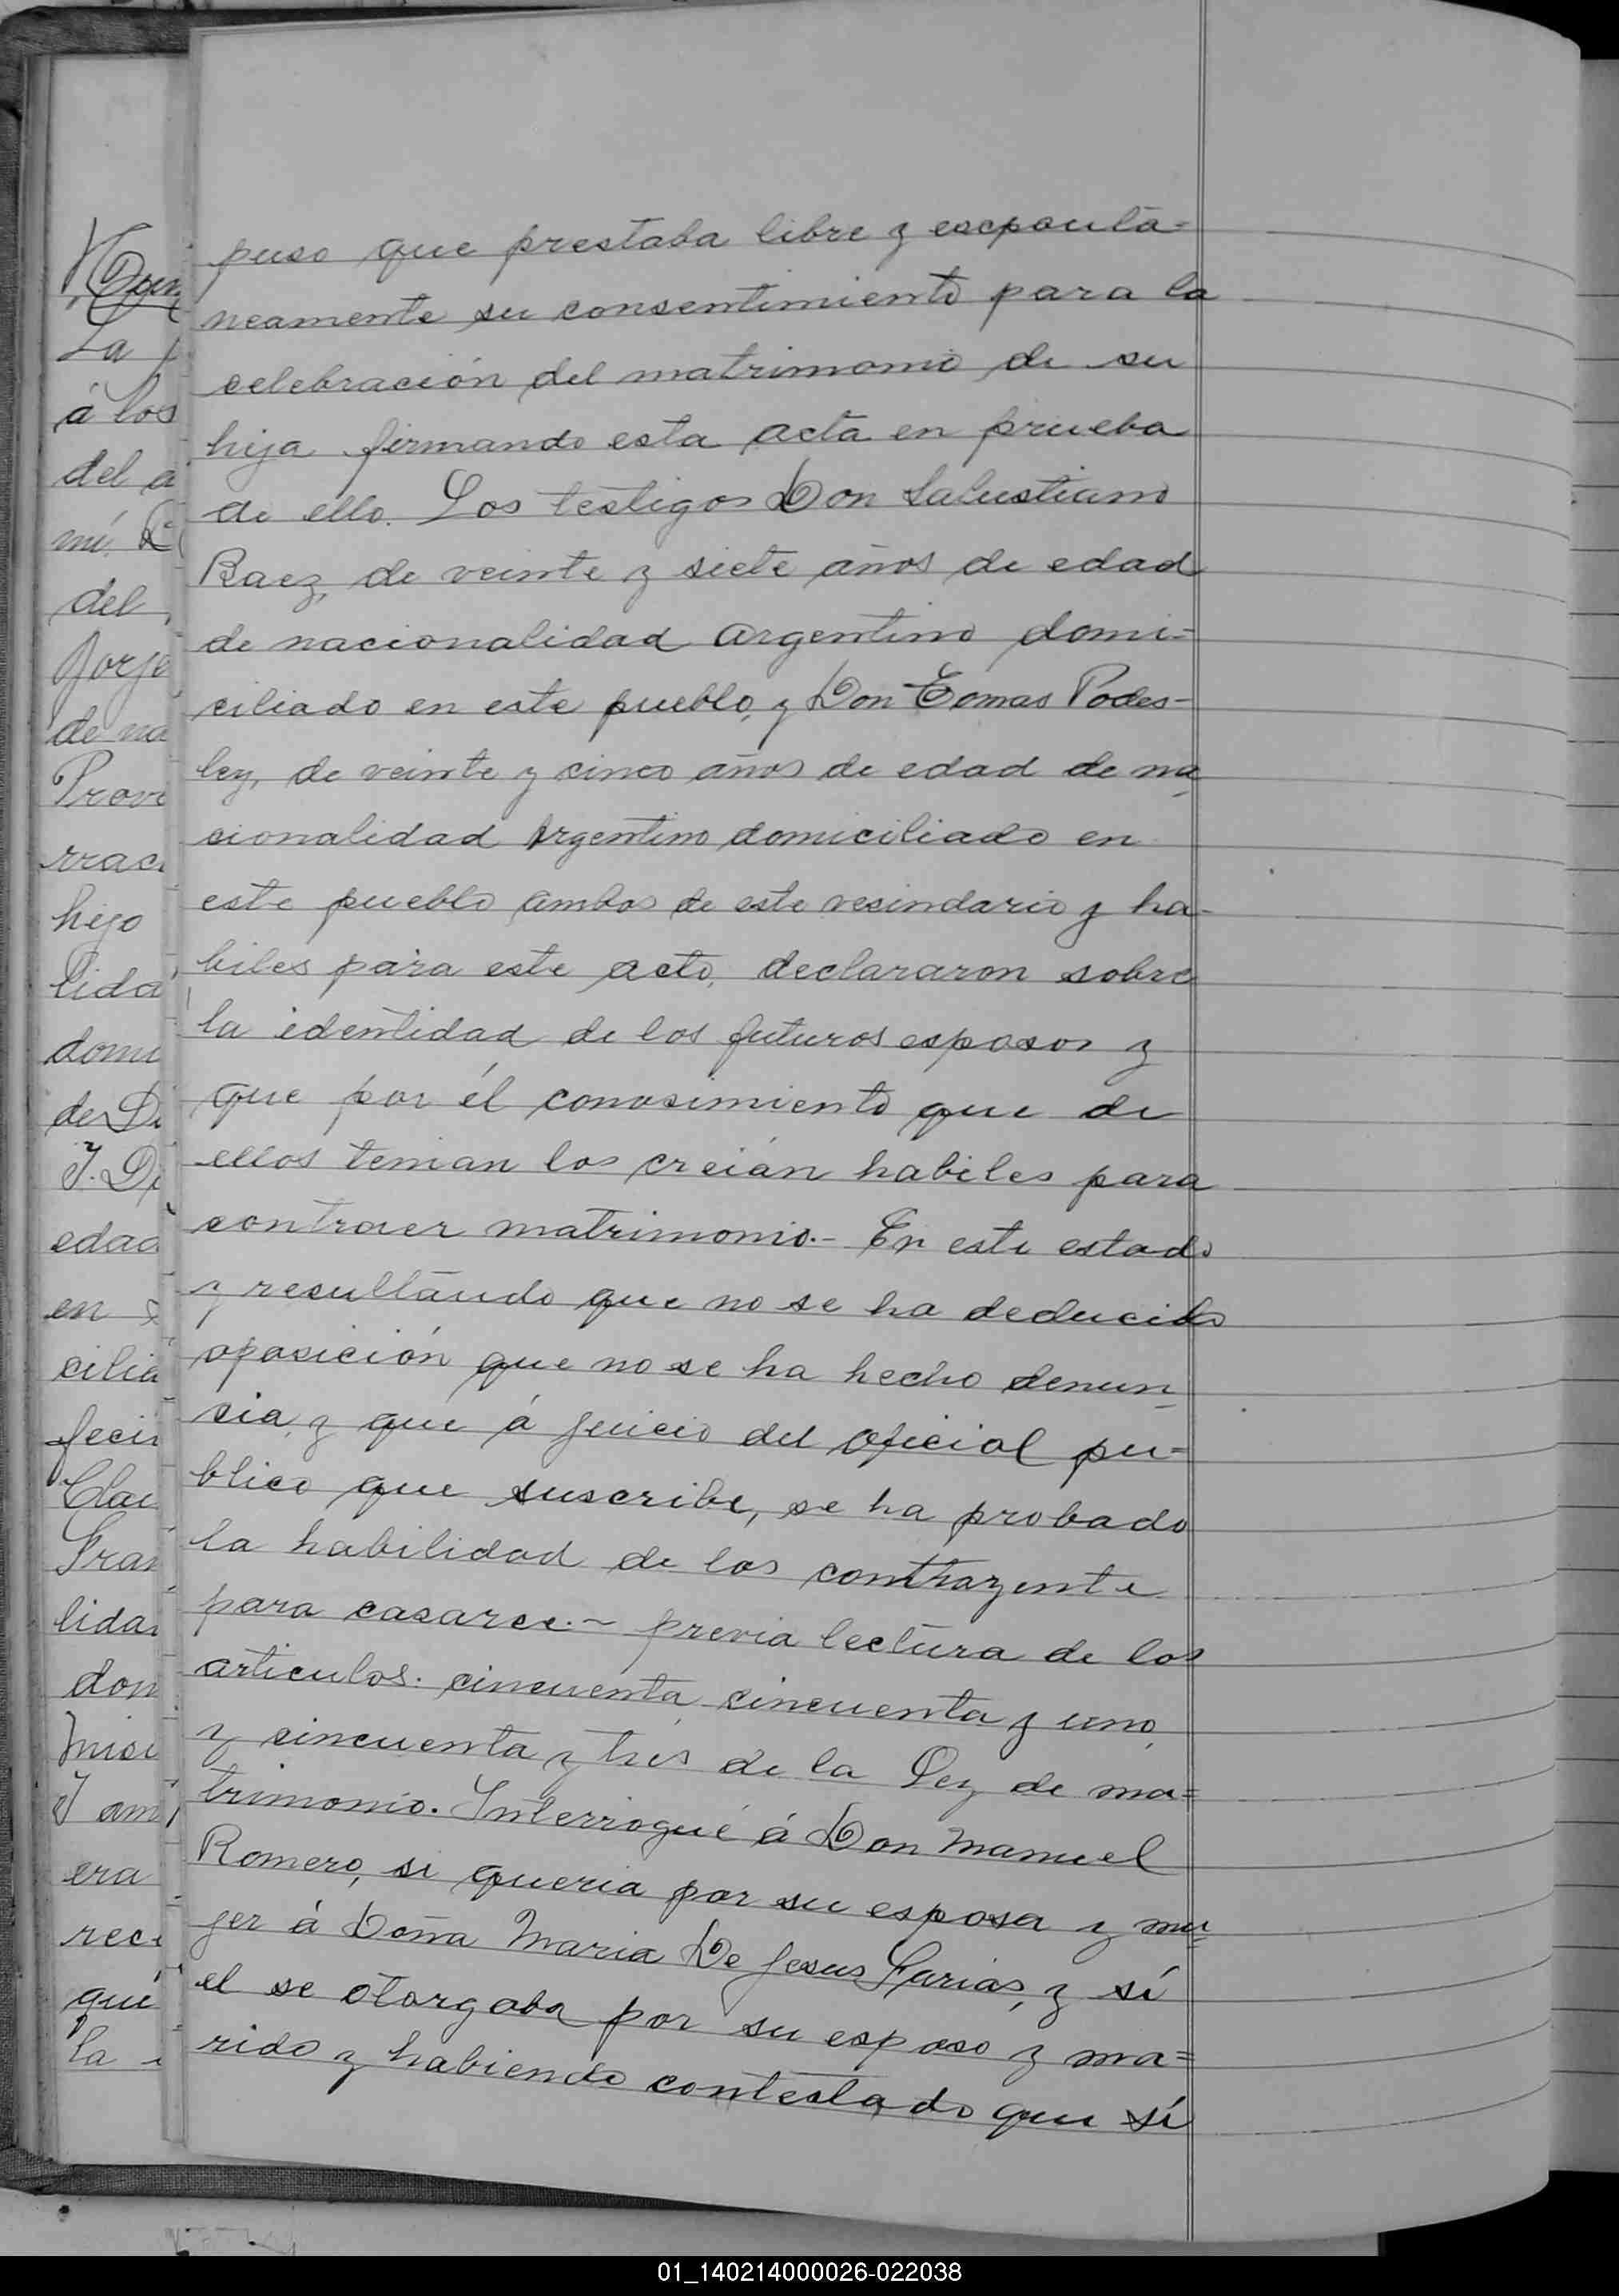 puso que prestaba libre y escpontá=
neamente su consentimiento para la
celebración del matrimomio de su
hija firmando esta acta en prueba
de ello. Los testigos Don Salustiano
Baez, de veinte y siete años de edad
de nacionalidad argentino domi=
ciliado en este pueblo, y Don Tomas Podes-
ley, de veinte y cinco años de edad de na
cionalidad Argentino domiciliado en
este pueblo ambos de este vesindario y ha-
biles para este acto, declararon sobre
la identidad de los futuros esposos y
que por él conosimiento que de
ellos tenian los creián habiles para
contraer matrimonio.- En este estado
y resultando que no se ha deducido
oposición que no se ha hecho denun
sia, y que á juicio del oficial pu=
blico que suscribe, se ha probado
la habilidad de los contrayente
para casarce.- previa lectura de los
articulos. cincuenta cincuenta y uno,
y cincuenta y trés de la Ley de ma=
trimonio. Interrogué á Don Manuel
Romero, si queria por su esposa y mu
jer á Doña Maria De Jesus Farias, y sí
el se otorgaba por su esposo y ma=
rido y habiendo contestado que sí
La
á los
del a
mí
del
Jorje
de na
Prov
hijo
lida
domi
de D
edad
en
cilia
lida
don
era
que
la
01_140214000026-022038